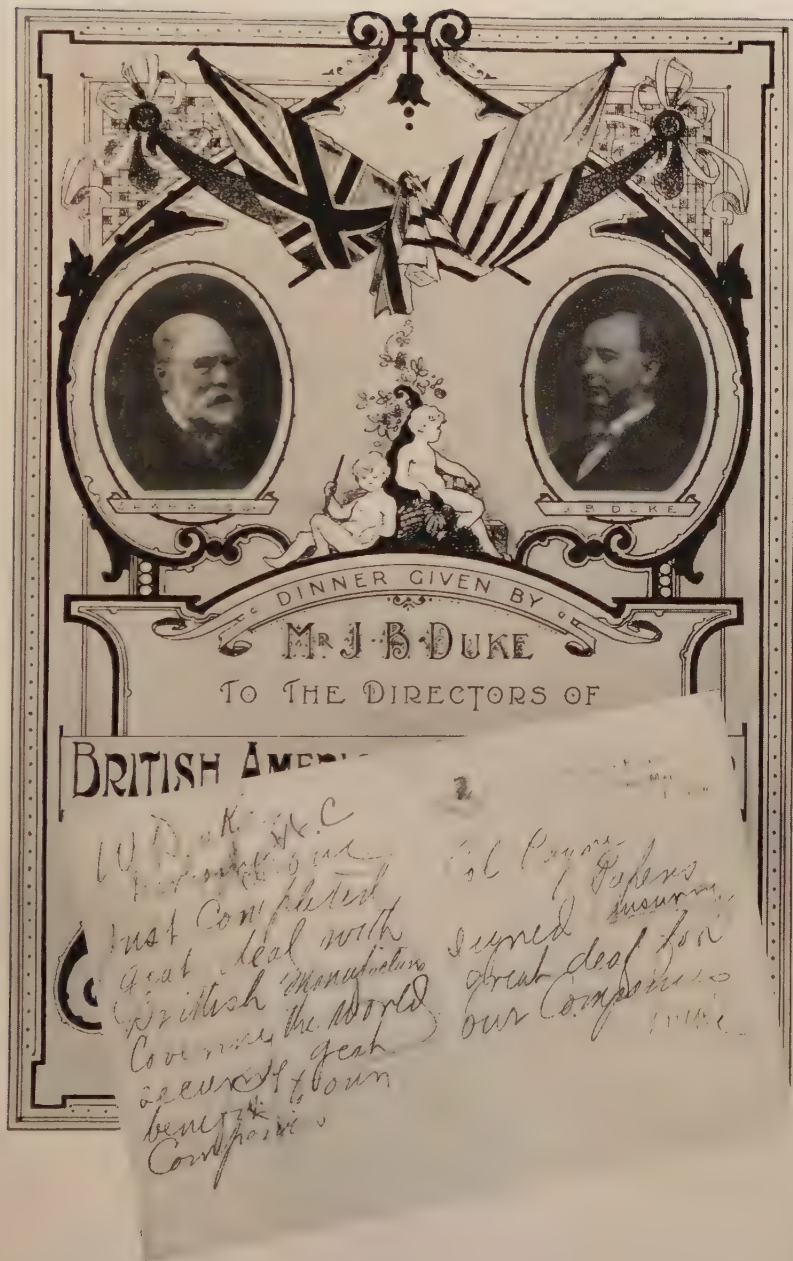 J B DUKE
DINNER GIVEN BY
MR J·B·DUKE
TO THE DIRECTORS OF
BRITISH AMERI
W Duke
N.C
Just Completed
great deal with
Brittish manufacturers
Covering the World
secures great
benefit to our
Companies
Col Payne
Papers
Signed
great deal for
our Companies